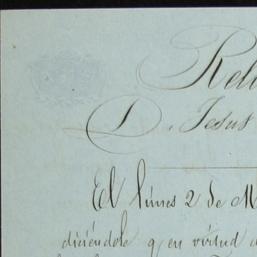 Rel
D. Jesus
El lúnes 2 de M
diciéndole q. en virtud d